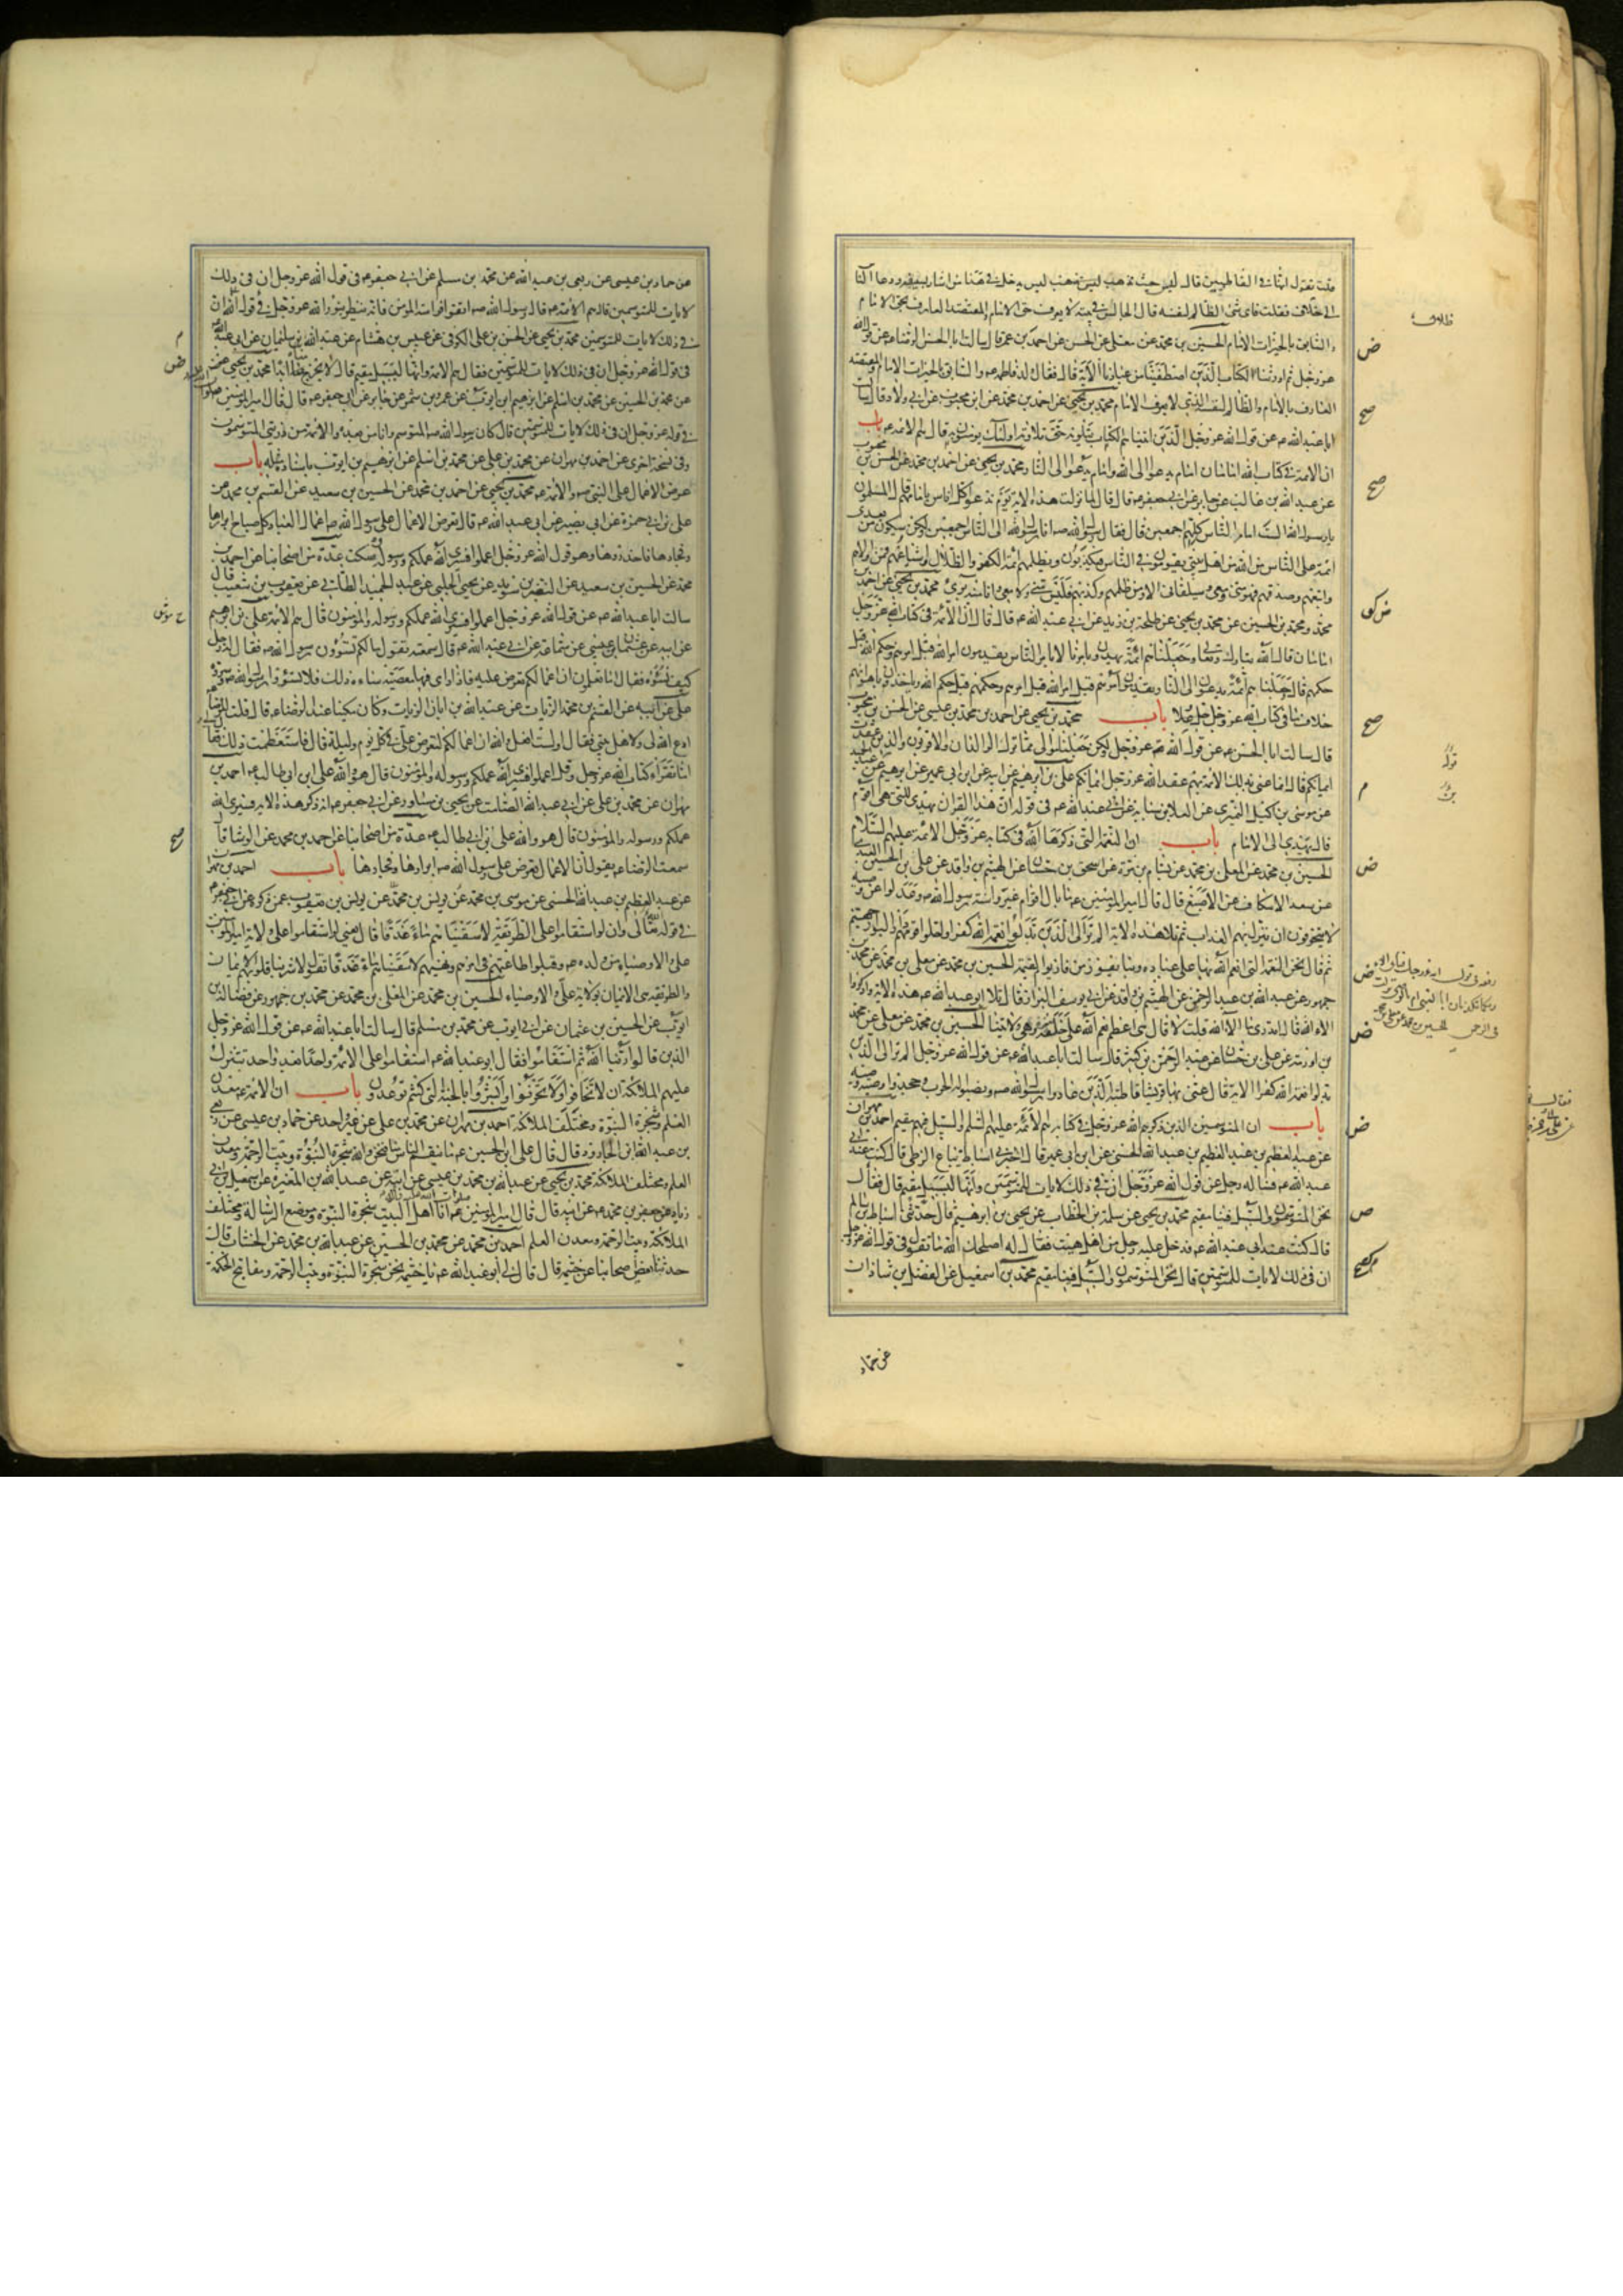 قلت نقول انها في الفاطميين قال ليس حيث تذهب ليس يدخل في هذا من اشار بسيفه ودعا الناس
الى خلاف فقلت فاى شئ الظالم لنفسه قال الجالس في بيته لا يعرف حق الامام والمقتصد العارف بحق الامام
والسابق بالخيرات الامام الحسين بن محمد عن معلى عن الحسن عن احمد بن عمر قال سالت ابا الحسن الرضا عن قول الله
عز وجل ثم اورثنا الكتاب الذين اصطفينا من عبادنا الاية قال فقال ولد فاطمه والسابق بالخيرات الامام والمقتصد
العارف بالامام والظالم لنفسه الذي لا يعرف الامام محمد بن يحيى عن احمد بن محمد عن ابن محبوب عن ابي ولاد قال سالت
ابا عبد الله عن قول الله عز وجل الذين اتيناهم الكتاب يتلونه حق تلاوته اولئك يؤمنون به قال هم الائمه باب
ان الائمة في كتاب الله امامان امام يدعو الى الله وامام يدعو الى النار محمد بن يحيى عن احمد بن محمد عن الحسن بن محبوب
عن عبد الله بن غالب عن جابر عن ابي جعفر قال قال لما نزلت هذه الاية يوم ندعو كل اناس بامامهم قال المسلمون
يا رسول الله الست امام الناس كلهم اجمعين قال فقال رسول الله انا رسول الله الى الناس اجمعين ولكن سيكون من بعدى
ائمة على الناس من الله من اهل بيتي يقومون في الناس فيكذبون ويظلمهم ائمة الكفر والضلال واشياعهم فمن والاهم
واتبعهم وصدقهم فهو مني ومعي وسيلقاني الا ومن ظلمهم وكذبهم فليس مني ولا معي وانا منه برئ محمد بن يحيى عن احمد بن
محمد ومحمد بن الحسين عن محمد بن يحيى عن طلحه بن زيد عن ابي عبد الله قال قال ان الائمة في كتاب الله عز وجل
امامان قال الله تبارك وتعالى وجعلناهم ائمة يهدون بامرنا لا بامر الناس يقدمون امر الله قبل امرهم وحكم الله قبل
حكمهم قال وجعلناهم ائمة يدعون الى النار يقدمون امرهم قبل امر الله وحكمهم قبل حكم الله وياخذون باهوائهم
خلاف ما في كتاب الله عز وجل باب محمد بن يحيى عن احمد بن محمد بن عيسى عن الحسن بن محبوب
قال سالت ابا الحسن عن قول الله عز وجل ولكل جعلنا موالى مما ترك الوالدان والاقربون والذين عقدت
ايمانكم قال انما عنى بذلك الائمة بهم عقد الله عز وجل ايمانكم على بن ابرهيم عن ابيه عن ابن ابى عمير عن ابرهيم بن عبد الحميد
عن موسى بن اكيل النميرى عن العلا بن سيابه عن ابي عبد الله في قوله ان هذا القران يهدى للتى هي اقوم
قال يهدي الى الامام باب ان النعمة التي ذكرها الله في كتابه عز وجل الائمة عليهم السلام
الحسين بن محمد عن المعلى بن محمد عن بسطام بن مرة عن اسحق بن حسان عن الهيثم بن واقد عن على بن الحسين العبدى
عن سعد الاسكاف عن الاصبغ قال قال امير المؤمنين ما بال اقوام غيروا سنة رسول الله وعدلوا عن وصيه
لا يتخوفون ان ينزل بهم العذاب ثم تلا هذه الاية الم تر الى الذين بدلوا نعمة الله كفرا واحلوا قومهم دار البوار جهنم
ثم قال نحن النعمة التى انعم الله بها على عباده وبنا يفوز من فاز يوم القيمة الحسين بن محمد عن معلى بن محمد عن محمد بن
جمهور عن عبد الله بن عبد الرحمن عن الهيثم بن واقد عن ابي يوسف البزاز قال تلا ابو عبد الله هذه الاية واذكروا
الاء الله قال اتدرى ما الاء الله قلت لا قال هي اعظم نعم الله على خلقه وهي ولايتنا الحسين بن محمد عن معلى عن محمد
بن اورمه عن على بن حسان عن عبد الرحمن بن كثير قال سالت ابا عبد الله عن قول الله عز وجل الم تر الى الذين
بدلوا نعمة الله كفرا الاية قال عنى بها قريشا قاطبة الذين عادوا رسول الله ونصبوا له الحرب وجحدوا وصية وصيه
باب ان المتوسمين الذين ذكرهم الله عز وجل في كتابه هم الائمة عليهم السلم والسبيل فيهم مقيم احمد بن مهران
عن عبد العظيم بن عبد الله الحسنى عن ابن ابى عمير قال اخبرني اسباط بياع الزطى قال كنت عند ابي
عبد الله فساله رجل عن قول الله عز وجل ان في ذلك لايات للمتوسمين وانها لبسبيل مقيم قال فقال
نحن المتوسمون والسبيل فينا مقيم محمد بن يحيى عن سلمة بن الخطاب عن يحيى بن ابرهيم قال حدثني اسباط بن سالم
قال كنت عند ابي عبد الله فدخل عليه رجل من اهل هيت فقال له اصلحك الله ما تقول في قول الله عز وجل
ان في ذلك لايات للمتوسمين قال نحن المتوسمون والسبيل فينا مقيم محمد بن اسمعيل عن الفضل بن شاذان
عن حماد
عن حماد بن عيسى عن ربعي بن عبد الله عن محمد بن مسلم عن ابي جعفر في قول الله عز وجل ان في ذلك
لايات للمتوسمين قال هم الائمة قال رسول الله اتقوا فراسة المؤمن فانه ينظر بنور الله عز وجل في قول الله ان
في ذلك لايات للمتوسمين محمد بن يحيى عن الحسن بن على الكوفى عن عبيس بن هشام عن عبد الله بن سليمان عن ابى عبد الله
في قول الله عز وجل ان في ذلك لايات للمتوسمين فقال هم الائمة وانها لبسبيل مقيم قال لا يخرج منا ابدا محمد بن يحيى
عن محمد بن الحسين عن محمد بن اسلم عن ابرهيم بن ايوب عن عمرو بن شمر عن جابر عن ابى جعفر قال قال امير المؤمنين
في قوله عز وجل ان في ذلك لايات للمتوسمين قال كان رسول الله المتوسم وانا من بعده والائمة من ذريتي المتوسمون
وفى نسخة اخرى عن احمد بن مهران عن محمد بن على عن محمد بن اسلم عن ابرهيم بن ايوب باسناده مثله باب
عرض الاعمال على النبى والائمة محمد بن يحيى عن احمد بن محمد عن الحسين بن سعيد عن القسم بن محمد عن
على بن ابي حمزة عن ابى بصير عن ابى عبد الله قال تعرض الاعمال على رسول الله اعمال العباد كل صباح ابرارها
وفجارها فاحذروها وهو قول الله عز وجل اعملوا فسيرى الله عملكم ورسوله وسكت عدة من اصحابنا عن احمد بن
محمد عن الحسين بن سعيد عن النضر بن سويد عن يحيى الحلبى عن عبد الحميد الطائي عن يعقوب بن شعيب قال
سالت ابا عبد الله عن قول الله عز وجل اعملوا فسيرى الله عملكم ورسوله والمؤمنون قال هم الائمة على بن ابرهيم
عن ابيه عن عثمان بن عيسى عن سماعة عن ابي عبد الله قال سمعته يقول ما لكم تسوؤن رسول الله فقال له رجل
كيف نسوؤه فقال اما تعلمون ان اعمالكم تعرض عليه فاذا راى فيها معصية ساءه ذلك فلا تسوؤا رسول الله وسروه
على عن ابيه عن القسم بن محمد الزيات عن عبد الله بن ابان الزيات وكان مكينا عند الرضا قال قلت للرضا
ادع الله لى ولاهل بيتي فقال اولست افعل والله ان اعمالكم لتعرض على في كل يوم وليلة قال فاستعظمت ذلك فقال
اما تقرا كتاب الله عز وجل وقل اعملوا فسيرى الله عملكم ورسوله والمؤمنون قال هو والله على ابن ابى طالب احمد بن
مهران عن محمد بن على عن ابي عبد الله الصامت عن يحيى بن مساور عن ابي جعفر انه ذكر هذه الاية فسيرى الله
عملكم ورسوله والمؤمنون قال هو والله على بن ابي طالب عدة من اصحابنا عن احمد بن محمد عن الوشا قال
سمعت الرضا يقول ان الاعمال تعرض على رسول الله ابرارها وفجارها باب احمد بن مهران
عن عبد العظيم بن عبد الله الحسنى عن موسى بن محمد عن يونس بن يعقوب عمن ذكره عن ابي جعفر
في قوله تعالى وان لو استقاموا على الطريقة لاسقيناهم ماء غدقا قال يعنى لو استقاموا على ولاية امير المؤمنين
على والاوصياء من ولده وقبلوا طاعتهم فى امرهم ونهيهم لاسقيناهم ماء غدقا يقول لاشربنا قلوبهم الايمان
والطريقة هي الايمان بولاية على والاوصياء الحسين بن محمد عن المعلى بن محمد عن محمد بن جمهور عن فضالة بن
ايوب عن الحسين بن عثمان عن ابي ايوب عن محمد بن مسلم قال سالت ابا عبد الله عن قول الله عز وجل
الذين قالوا ربنا الله ثم استقاموا فقال ابو عبد الله استقاموا على الائمة واحدا بعد واحد تتنزل
عليهم الملائكة ان لا تخافوا ولا تحزنوا وابشروا بالجنة التى كنتم توعدون باب ان الائمة معدن
العلم وشجرة النبوة ومختلف الملائكة احمد بن مهران عن محمد بن على عن غير واحد عن حماد بن عيسى عن ربعى
بن عبد الله عن ابى الجارود قال قال على ابن الحسين ما ينقم الناس منا فنحن والله شجرة النبوة وبيت الرحمة ومعدن
العلم ومختلف الملائكة محمد بن يحيى عن عبد الله بن محمد بن عيسى عن ابيه عن عبد الله بن المغيره عن اسمعيل بن ابي
زياد عن جعفر بن محمد عن ابيه قال قال امير المؤمنين انا اهل البيت شجرة النبوة وموضع الرسالة ومختلف
الملائكة وبيت الرحمة ومعدن العلم احمد بن محمد عن محمد بن الحسين عن عبد الله بن محمد عن الخشاب قال
حدثنا بعض اصحابنا عن خيثمه قال قال لي ابو عبد الله يا خيثمه نحن شجرة النبوة وبيت الرحمة ومفاتيح الحكمة